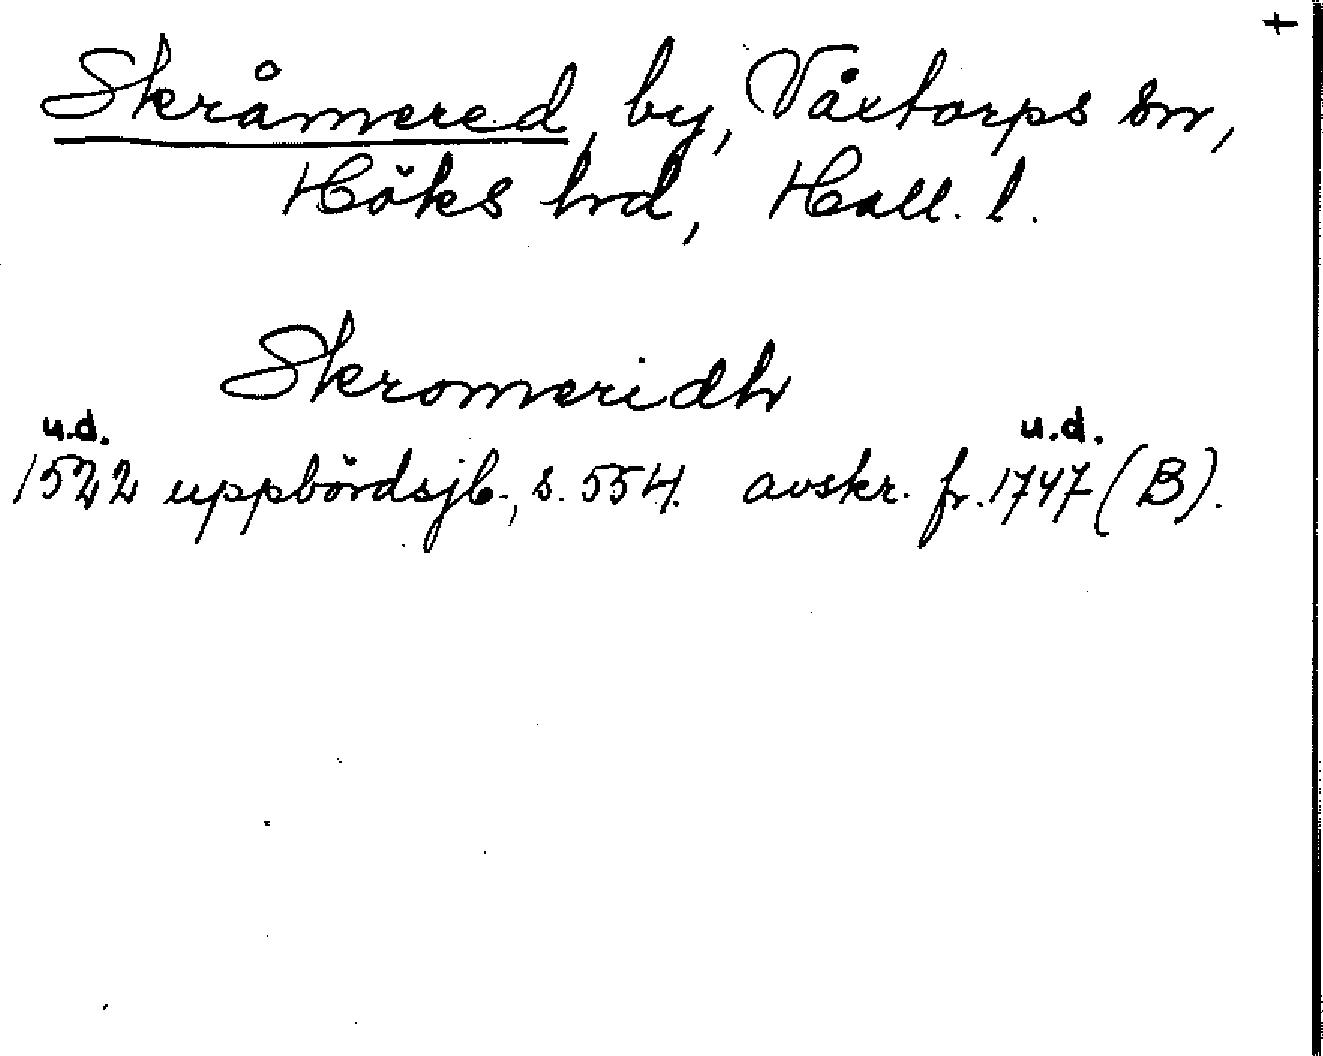 +
Skråmered, by, Våxtorps sn,
Höks hd, Hall. l.
Skromeridh
u.d. u.d.
1522 uppbördsjb., s. 554. avskr. fr. 1747 (B).